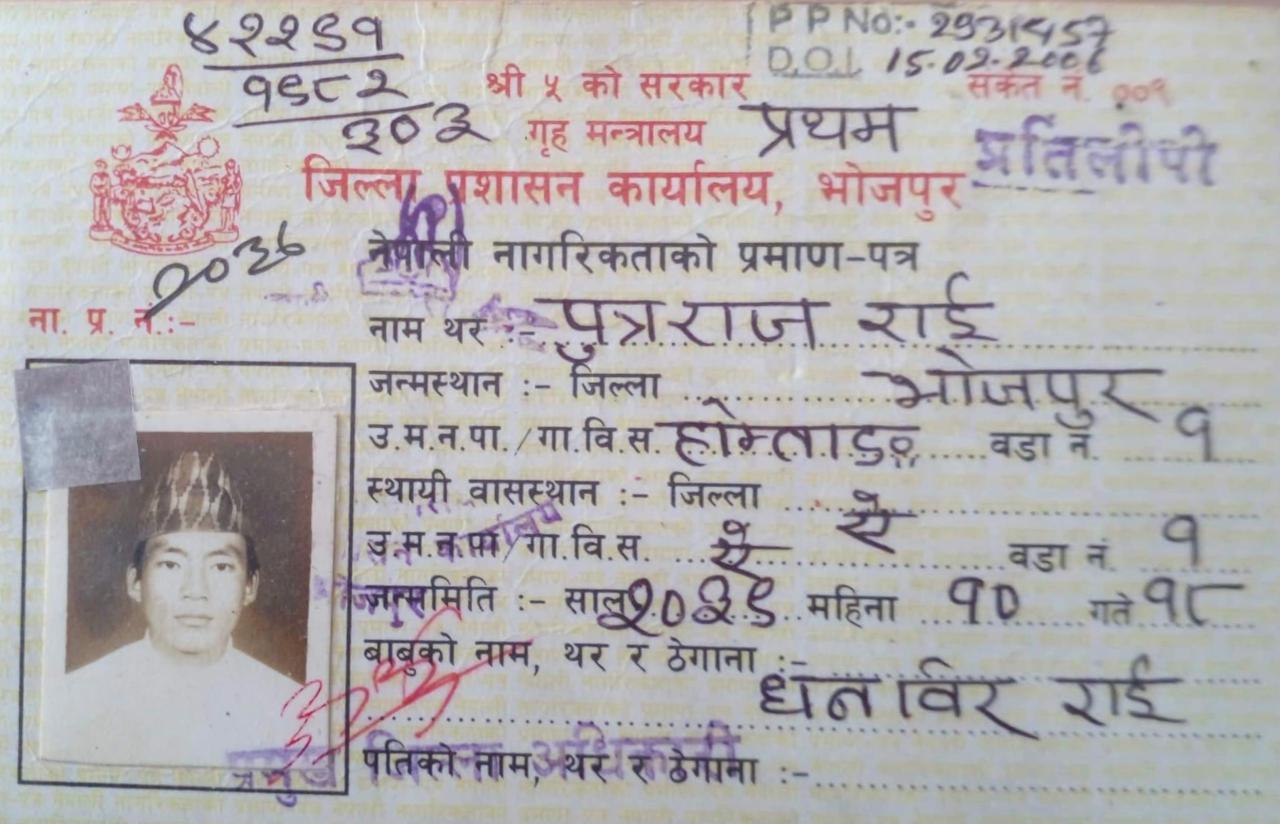 ४२२९१
P P No:- 2931457
D.O.I. 15.02.2006
१९८२
३०३
श्री ५ को सरकार
संकेत नं. ००१
गृह मन्त्रालय प्रथम
प्रतिलीपी
जिल्ला प्रशासन कार्यालय, भोजपुर
नेपाली नागरिकताको प्रमाण-पत्र
ना. प्र. नं.:-
नाम थर :- पुत्रराज राई
जन्मस्थान :- जिल्ला भोजपुर
उ.म.न.पा./गा.वि.स. होम्ताङ वडा नं. १
स्थायी वासस्थान :- जिल्ला ऐ ऐ
उ.म.न.पा/गा.वि.स. वडा नं. १
जन्ममिति :- साल २०२९ महिना १० गते १८
बाबुको नाम, थर र ठेगाना :-
धनविर राई
पतिको नाम, थर र ठेगाना :-
प्रमुख जिल्ला अधिकारी